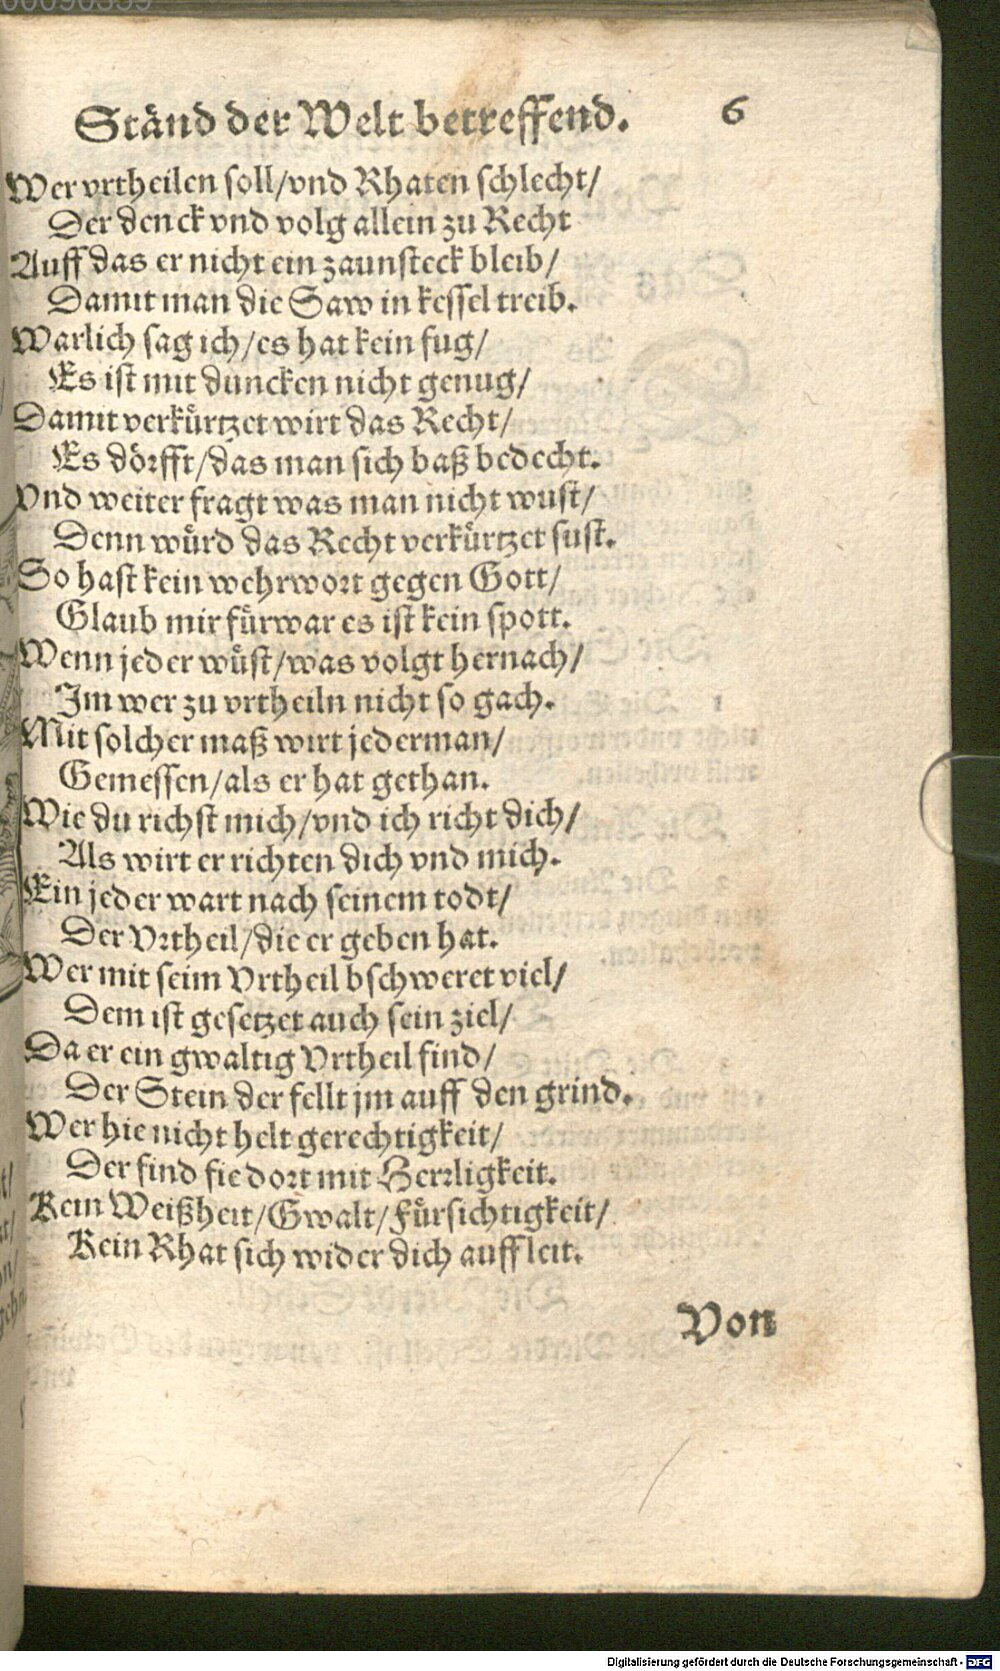 Ständ der Welt betreffend. 6
Wer vrtheilen soll/vnd Rhaten schlecht/
Der denck vnd volg allein zu Recht
Auff das er nicht ein zaunsteck bleib/
Damit man die Saw in kessel treib.
Warlich sag ich/es hat kein fug/
Es ist mit duncken nicht genug/
Damit verkürtzet wirt das Recht/
Es dörfft/das man sich baß bedecht.
Vnd weiter fragt was man nicht wust/
Denn würd das Recht verkürtzet sust.
So hast kein wehrwort gegen Gott/
Glaub mir fürwar es ist kein spott.
Wenn jeder wüst/was volgt hernach/
Im wer zu vrtheiln nicht so gach.
Mit solcher maß wirt jederman/
Gemessen/als er hat gethan.
Wie du richst mich/vnd ich richt dich/
Als wirt er richten dich vnd mich.
Ein jeder wart nach seinem todt/
Der Vrtheil/die er geben hat.
Wer mit seim Vrtheil bschweret viel/
Dem ist gesetzet auch sein ziel/
Da er ein gwaltig Vrtheil find/
Der Stein der fellt jm auff den grind.
Wer hie nicht helt gerechtigkeit/
Der find sie dort mit Herrligkeit.
Kein Weißheit/Gwalt/Fürsichtigkeit/
Kein Rhat sich wider dich auffleit.
Von
Digitalisierung gefördert durch die Deutsche Forschungsgemeinschaft - DFG